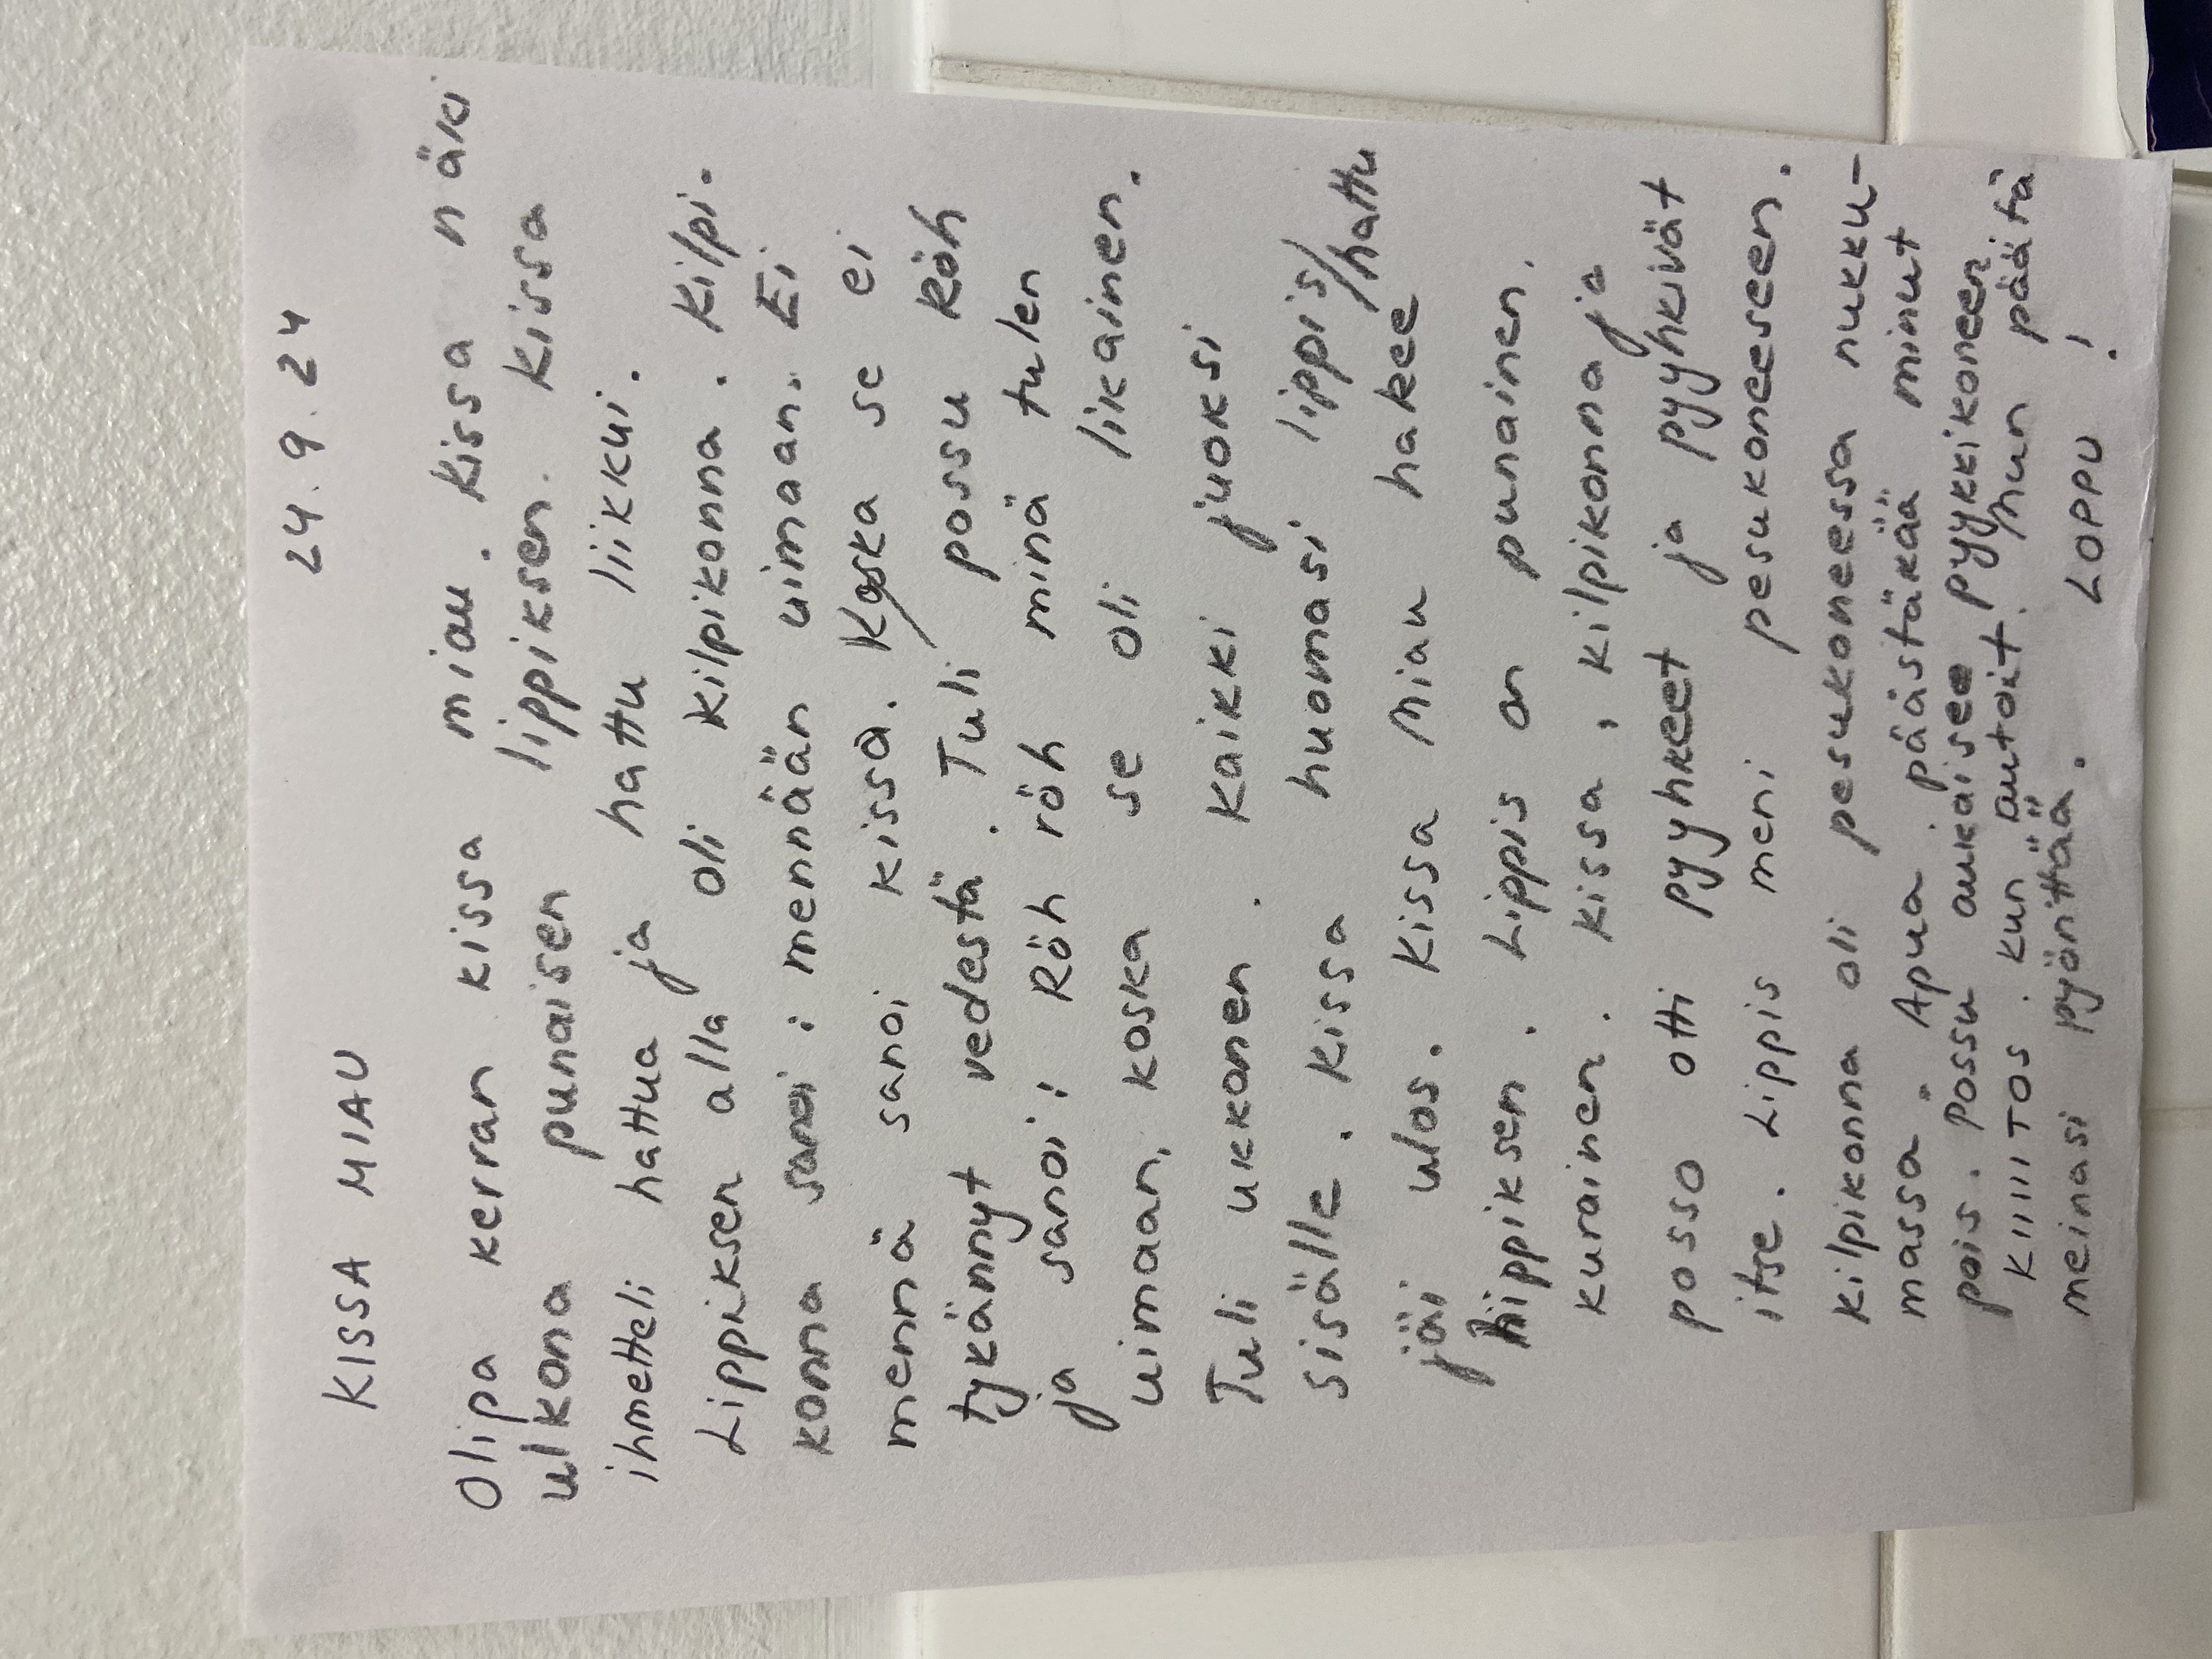 24.9.24
KISSA MIAU
Olipa kerran kissa miau. Kissa näki
ulkona punaisen lippiksen. Kissa
ihmetteli hattua ja hattu liikkui.
Lippiksen alla oli kilpikonna. Kilpi-
konna sanoi: mennään uimaan. Ei
mennä sanoi kissa. Koska se ei
tykännyt vedestä. Tuli possu Röh
ja sanoi: Röh röh minä tulen
uimaan, koska se oli likainen.
Tuli ukkonen. Kaikki juoksi
sisälle. Kissa huomasi, lippis/hattu
jäi ulos. Kissa Miau hakee
hippiksen. Lippis on punainen.
kurainen. Kissa, kilpikonna ja
posso otti pyyhkeet ja pyyhkivät
itse. Lippis meni pesukoneeseen.
Kilpikonna oli pesukoneessa nukku-
massa. Apua. päästäkää minut
pois. Possu aukaisee pyykkikoneen.
KIIIITOS. kun autoit. hun päätä
meinasi pyönttää.
LOPPU!